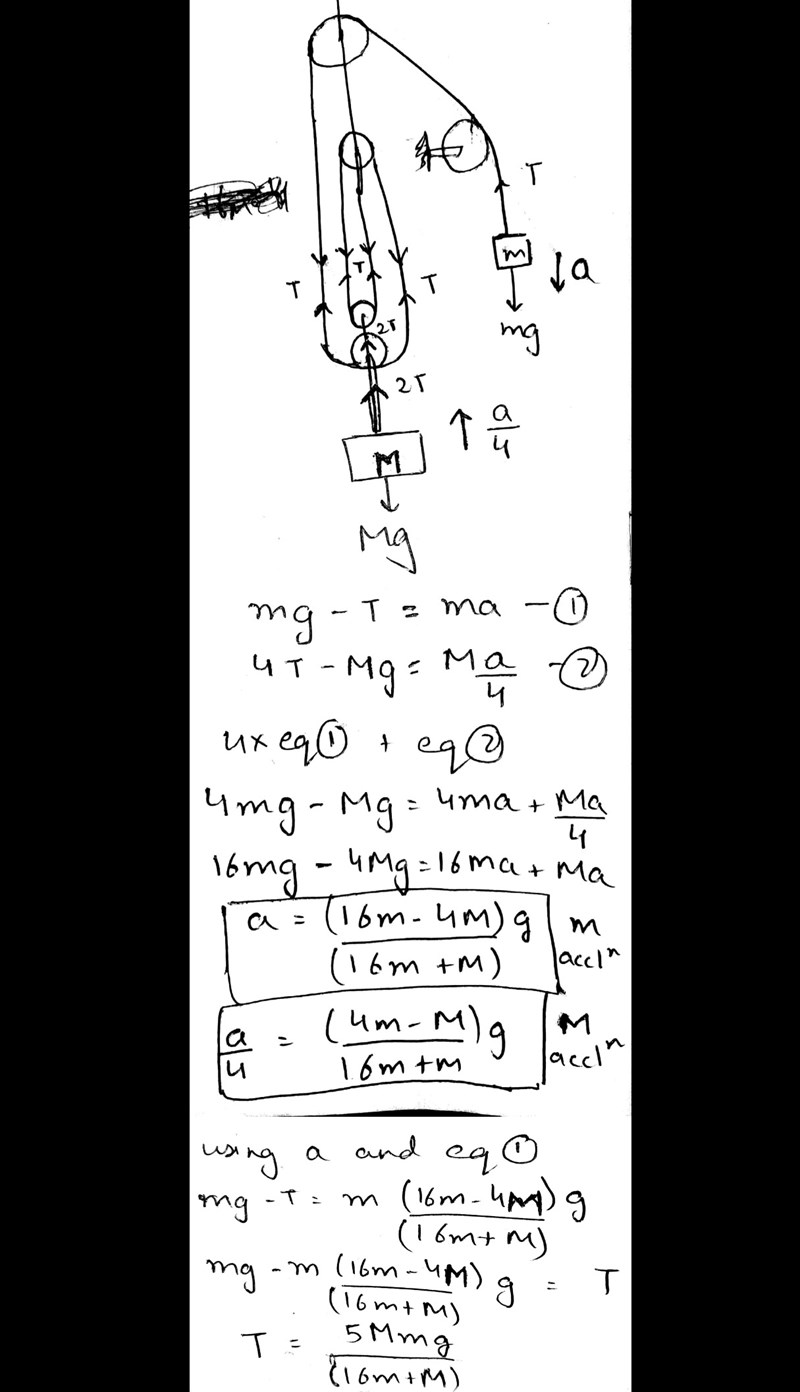 T
T
T
T
2T
2T
m
↓a
mg
M
↑ a/4
Mg
mg - T = ma - ①
4T - Mg = Ma/4 - ②
4 x eq ① + eq ②
4mg - Mg = 4ma + Ma/4
16mg - 4Mg = 16ma + Ma
a = (16m - 4M) g / (16m + M) m accl^n
a/4 = (4m - M) g / 16m + M M accl^n
using a and eq ①
mg - T = m (16m - 4M) g / (16m + M)
mg - m (16m - 4M) g / (16m + M) = T
T = 5Mmg / (16m + M)